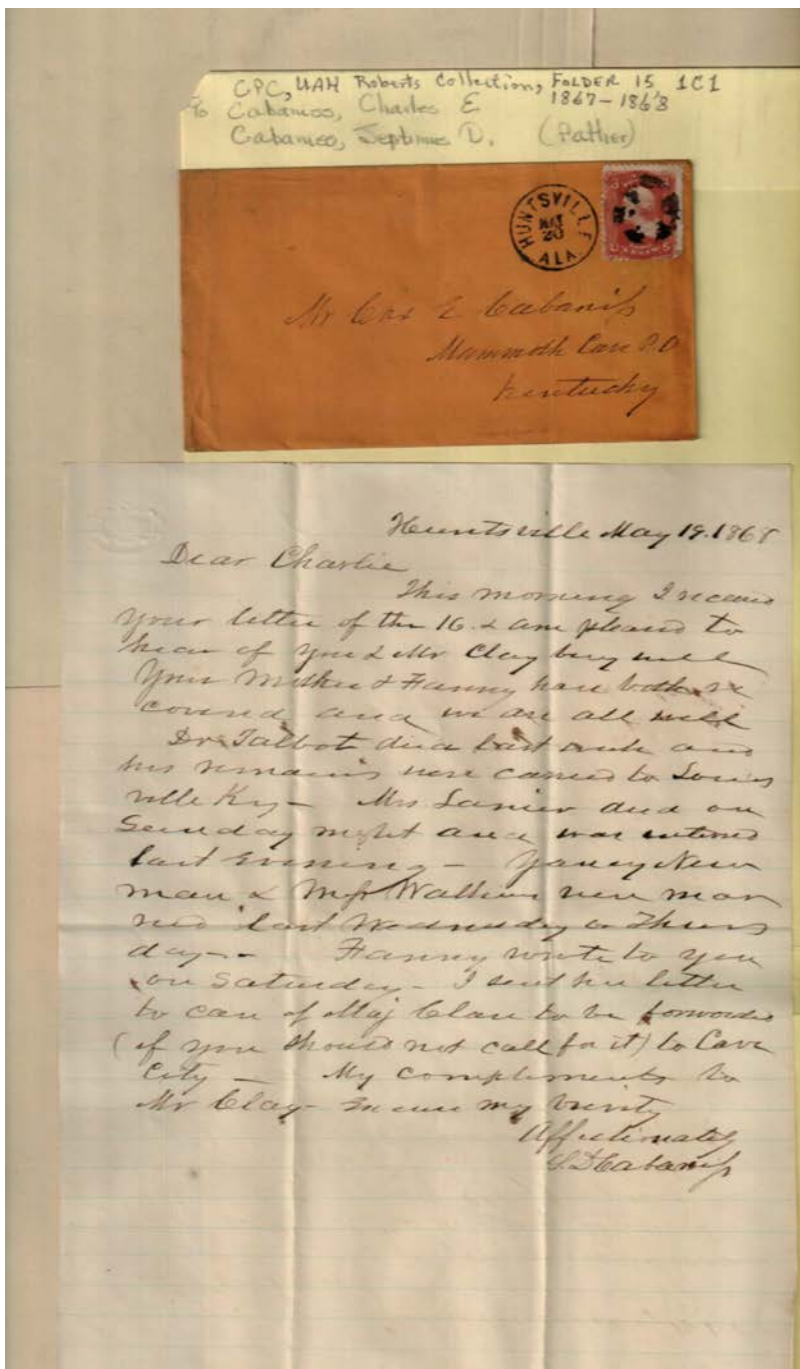 CPC, UAH Roberts Collection, FOLDER 15 1C1
1867-1868
To Cabaniss, Charles E
Cabaniss, Septimus D. (Father)
HUNTSVILLE
MAY
20
ALA
Mr Cas E Cabaniss
Mammoth Cave P.O
Kentucky
Huntsville May 19. 1868
Dear Charlie
This morning I receivd
your letter of the 16. & am pleasd to
hear of you & Mr Clay being well
Your Mother & Fanny have both re
covered and we are all well
Dr Talbot died last week and
his remains were carried to Louis
ville Ky - Mrs Lanier died on
Sunday night and was interred
last evening - Yancy New
man & Miss Watkins were mar
ried last Wednesday or Thurs
day - Fanny wrote to you
on Saturday - I sent her letter
to care of Maj Clare to be forwarded
(if you should not call for it) to Cave
City - My compliments to
Mr Clay - Excuse my brevity
Affectionately
S.D Cabaniss